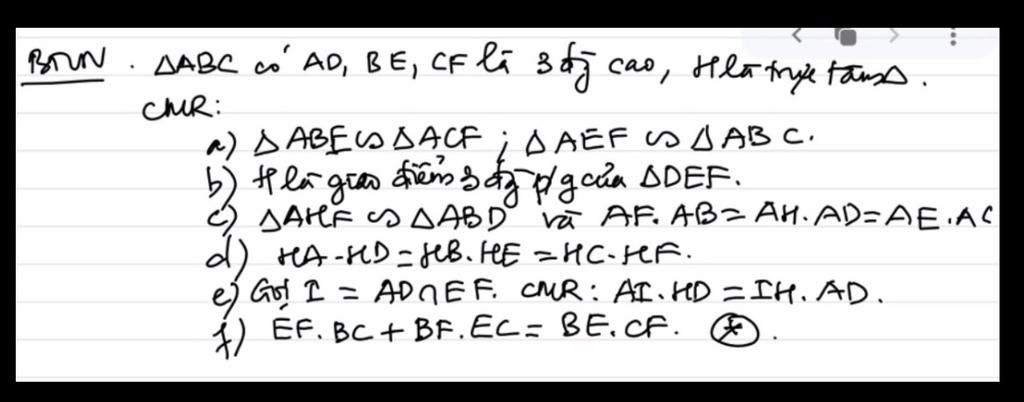 BTVN . ΔABC có AD, BE, CF là 3 đg cao, H là trực tâm Δ.
CMR:
a) ΔABE ∽ ΔACF ; ΔAEF ∽ ΔABC.
b) H là giao điểm 3 đg p/g của ΔDEF.
c) ΔAHF ∽ ΔABD và AF.AB=AH.AD=AE.AC
d) HA.HD=HB.HE=HC.HF.
e) Gọi I = AD∩EF. CMR: AI.HD=IH.AD.
f) EF.BC+BF.EC=BE.CF. (*).